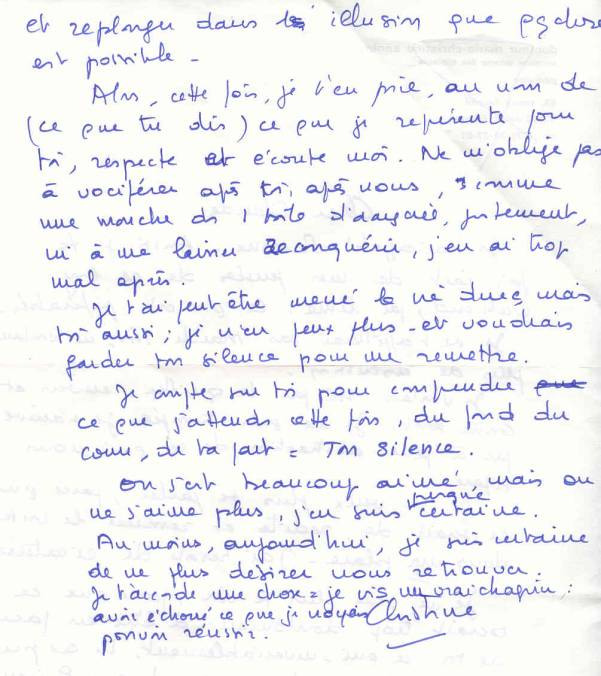 et replonger dans les illusion que qqchose
est possible -
Alors, cette fois, je t'en prie, au nom de
(ce que tu dis) ce que je représente pour
toi, respecte et écoute moi. Ne m'oblige pas
à vociférer après toi, après nous, comme
une mouche ds 1 toile d'araignée, justement,
ni à me laisser reconquérir, j'en ai trop
mal après.
Je t'ai peut être mené la vie dure, mais
toi aussi ; je n'en peux plus - et voudrais
garder ton silence pour me remettre.
Je compte sur toi pour comprendre que
ce que j'attends cette fois, du fond du
coeur, de ta part = Ton silence.
On s'est beaucoup aimé, mais on
ne s'aime plus, j'en suis presque certaine.
Au moins, aujourd'hui, je suis certaine
de ne plus désirer nous retrouver.
Je t'accorde une chose = je vis un vrai chagrin :
avoir échoué ce que je voyais
pouvoir réussir.
Christine